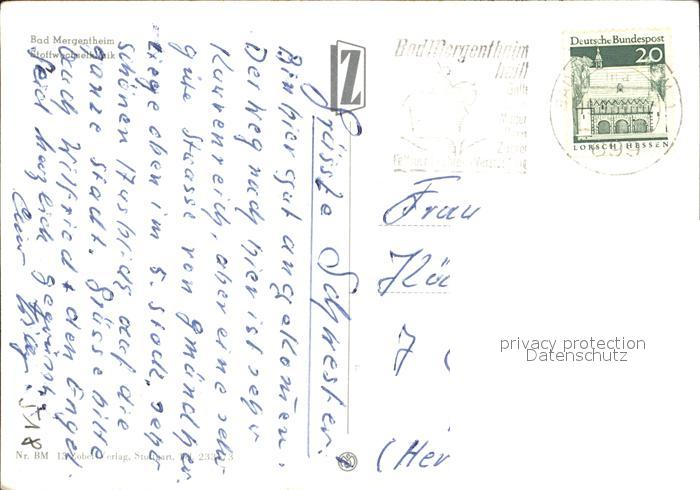 Bad Mergentheim
Stoffwechselklinik
Grüsse Schwester!
Bin hier gut angekommen.
Der Weg nach hier ist sehr
Kurvenreich, aber eine sehr
gute Strasse von Gmünd her.
Liege oben im 5. Stock, sehr
schönen Ausblick auf die
ganze Stadt. Grüsse bitte
auch Wilfried + den Engel.
Seid herzlich gegrüsst
Euer
Z
Bad Mergentheim
heilt
Galle
Leber
Magen
Darm
Zucker
Deutsche Bundespost
20
LORSCH/HESSEN
699
Frau
Kö
7
(Her
privacy protection
Datenschutz
Nr. BM 13 Zobel-Verlag, Stuttgart, Tel.